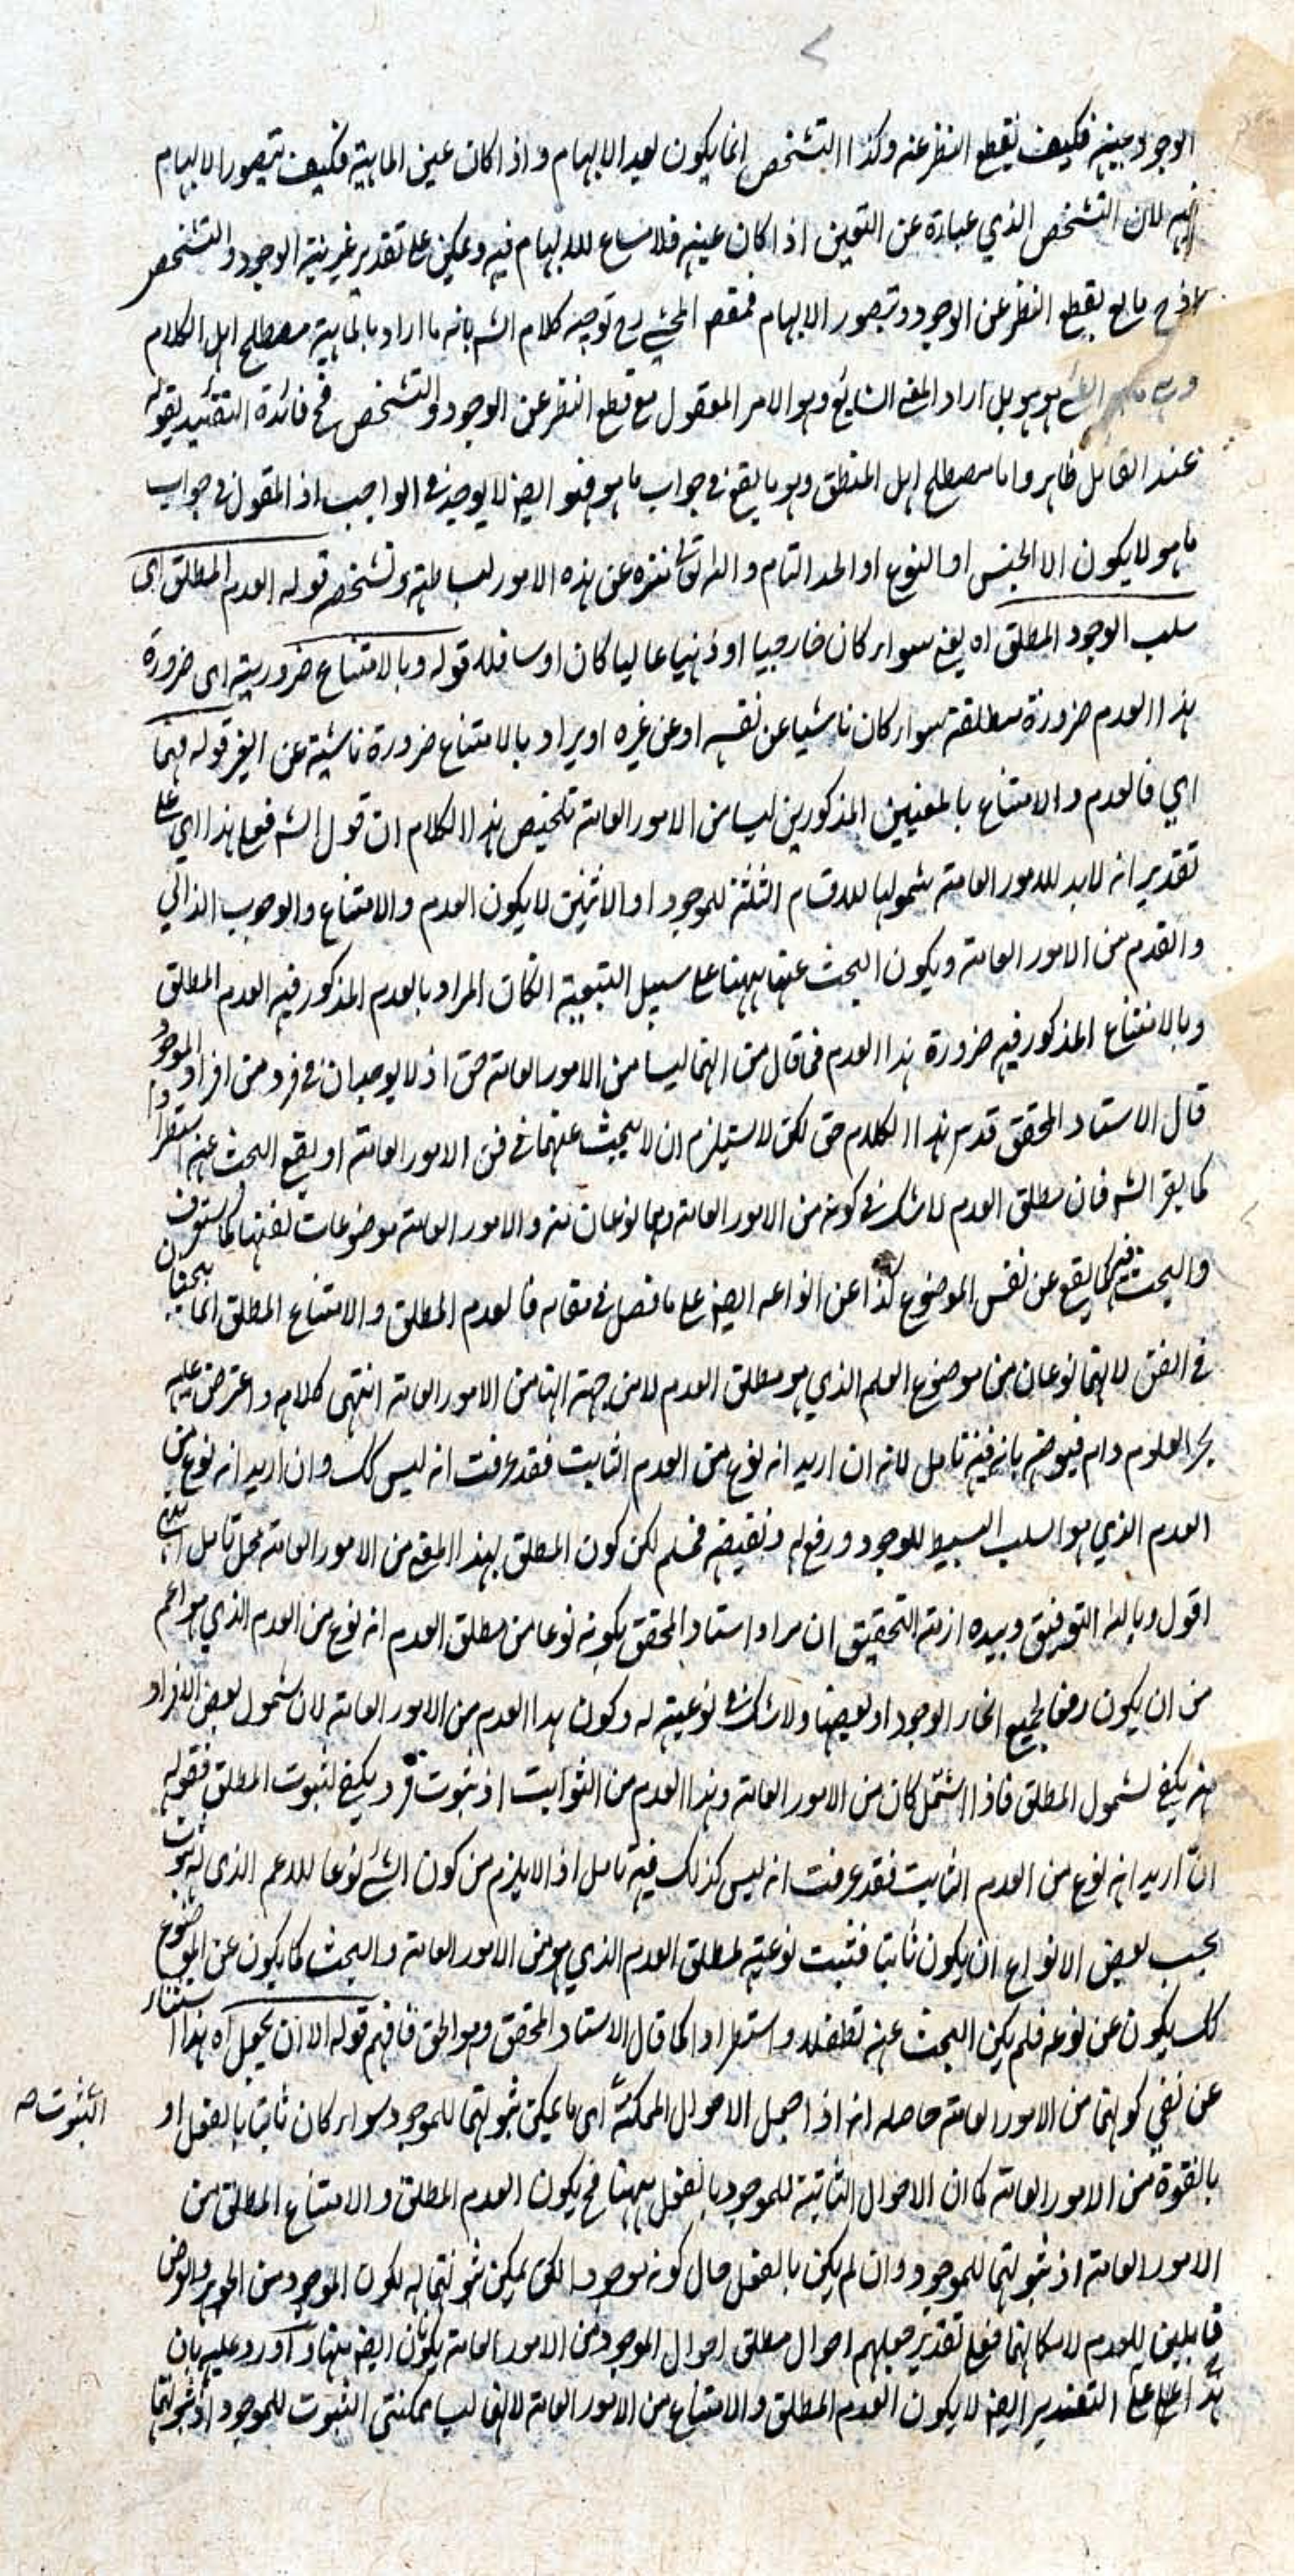 الوجود عينه فكيف يقطع النظر عنه وكذا التشخص انما يكون بعد الابهام و اذا كان عين الماهية فكيف يتصور الابهام
فيه لان التشخص الذي عبارة عن التعين اذا كان عينه فلا مساغ للابهام فيه و يمكن على تقدير غيرية الوجود و التشخص
يقطع النظر عن الوجود و يتصور الابهام فمقصود المحشي رح توجيه كلام الشه بانه ما اراد بالماهية مصطلح اهل الكلام
هو هو بل اراد المعنى الشايع وهو الامر المعقول مع قطع النظر عن الوجود و التشخص فح فائدة التقييد بقوله
عند القايل ظاهر و اما مصطلح اهل المنطق وهو ما يقع في جواب ما هو فهو ايضا لا يوجد في الواجب اذ المقول في جواب
ما هو لا يكون الا الجنس او النوع او الحد التام و الله تعالى منزه عن هذه الامور لبساطته و تشخصه قوله العدم المطلق اى
سلب الوجود المطلق اه يعني سواء كان خارجيا او ذهنيا عاليا كان او سافلا قوله و بالامتناع ضرورية اى ضرورة
هذا العدم ضرورة مطلقة سواء كان ناشيا عن نفسه او عن غيره او يراد بالامتناع ضرورة ناشية عن الغير قوله فهما
اي فالعدم و الامتناع بالمعنيين المذكورين ليسا من الامور العامة تلخيص هذا الكلام ان قول الشه فعلى هذا اي على
تقدير انه لابد للامور العامة شمولها للاقسام الثلثة للموجود او الاثنين لا يكون العدم و الامتناع و الوجوب الذاتي
و القدم من الامور العامة و يكون البحث عنها ههنا على سبيل التبعية انكان المراد بالعدم المذكور فيه العدم المطلق
و بالامتناع المذكور فيه ضرورة هذا العدم فما قال من انهما ليسا من الامور العامة حق اذ لا يوجدان في فرد من افراد الموجود
قال الاستاد المحقق قدس هذا الكلام حق لكن لا يستلزم ان لا يبحث عنهما في فن الامور العامة او يقع البحث عنه استطرادا
كما يقر الشه فان مطلق العدم لا شك في كونه من الامور العامة وهما نوعان منه و الامور العامة موضوعات لفنها كما ستعرف
و البحث فيه كما يقع عن نفس الموضوع كذا عن انواعه ايضا على ما فصل في مقامه فالعدم المطلق و الامتناع المطلق انما يبحثان
في الفن لانهما نوعان من موضوع العلم الذي هو مطلق العدم لا من جهة انها من الامور العامة انتهى كلامه و اعترض عليه
بحر العلوم دام فيوضه بانه فيه تامل لانه ان اريد انه نوع من العدم الثابت فقد عرفت انه ليس كك و ان اريد انه نوع من
العدم الذي هو السلب البسيط للوجود و رفع له و نقيضه فمسلم لكن كون المطلق بهذا المعنى من الامور العامة محل تامل انتهى
اقول و بالله التوفيق و بيده ازمة التحقيق ان مراد استاد المحقق بكونه نوعا من مطلق العدم انه نوع من العدم الذي هو اعم
من ان يكون رفعا لجميع انحاء الوجود او بعضها و لا شك في نوعيته له و كون هذا العدم من الامور العامة لان شمول بعض الافراد
منه يكفي لشمول المطلق فاذا اشتمل كان من الامور العامة و هذا العدم من الثوابت اذ ثبوت فرد يكفي لثبوت المطلق فقوله
ان اريد انه نوع من العدم الثابت فقد عرفت انه ليس كذلك فيه تامل اذ لا يلزم من كون الشئ نوعا للاعم الذى له ثبوت
بحسب بعض الانواع ان يكون ثابتا فثبت نوعيته لمطلق العدم الذي هو من الامور العامة و البحث كما يكون عن الموضوع
كك يكون عن نوعه فلم يكن البحث عنه تطفلا و استطرادا كما قال الاستاد المحقق وهو الحق فافهم قوله الا ان يجعل اه هذا استثناء
عن نفي كونهما من الامور العامة حاصله انه اذا جعل الاحوال الممكنة اى ما يمكن ثبوتها للموجود سواء كان ثابتا بالفعل او
الثبوت صه
بالقوة من الامور العامة كما ان الاحوال الثابتة للموجود بالفعل ههنا فح يكون العدم المطلق و الامتناع المطلق من
الامور العامة اذ ثبوتهما للموجود و ان لم يكن بالفعل حال كونه موجودا لكن يمكن ثبوتهما له لكون الموجود من الجوهر و العرض
قابلين للعدم لامكانهما فعلى تقدير جعلهم احوال مطلق احوال الموجود من الامور العامة يكونان ايضا منها و اورد عليه بان
هذا على التقدير ايضا لا يكون العدم المطلق و الامتناع من الامور العامة لانهما ليسا ممكنتي الثبوت للموجود اذ ثبوتهما